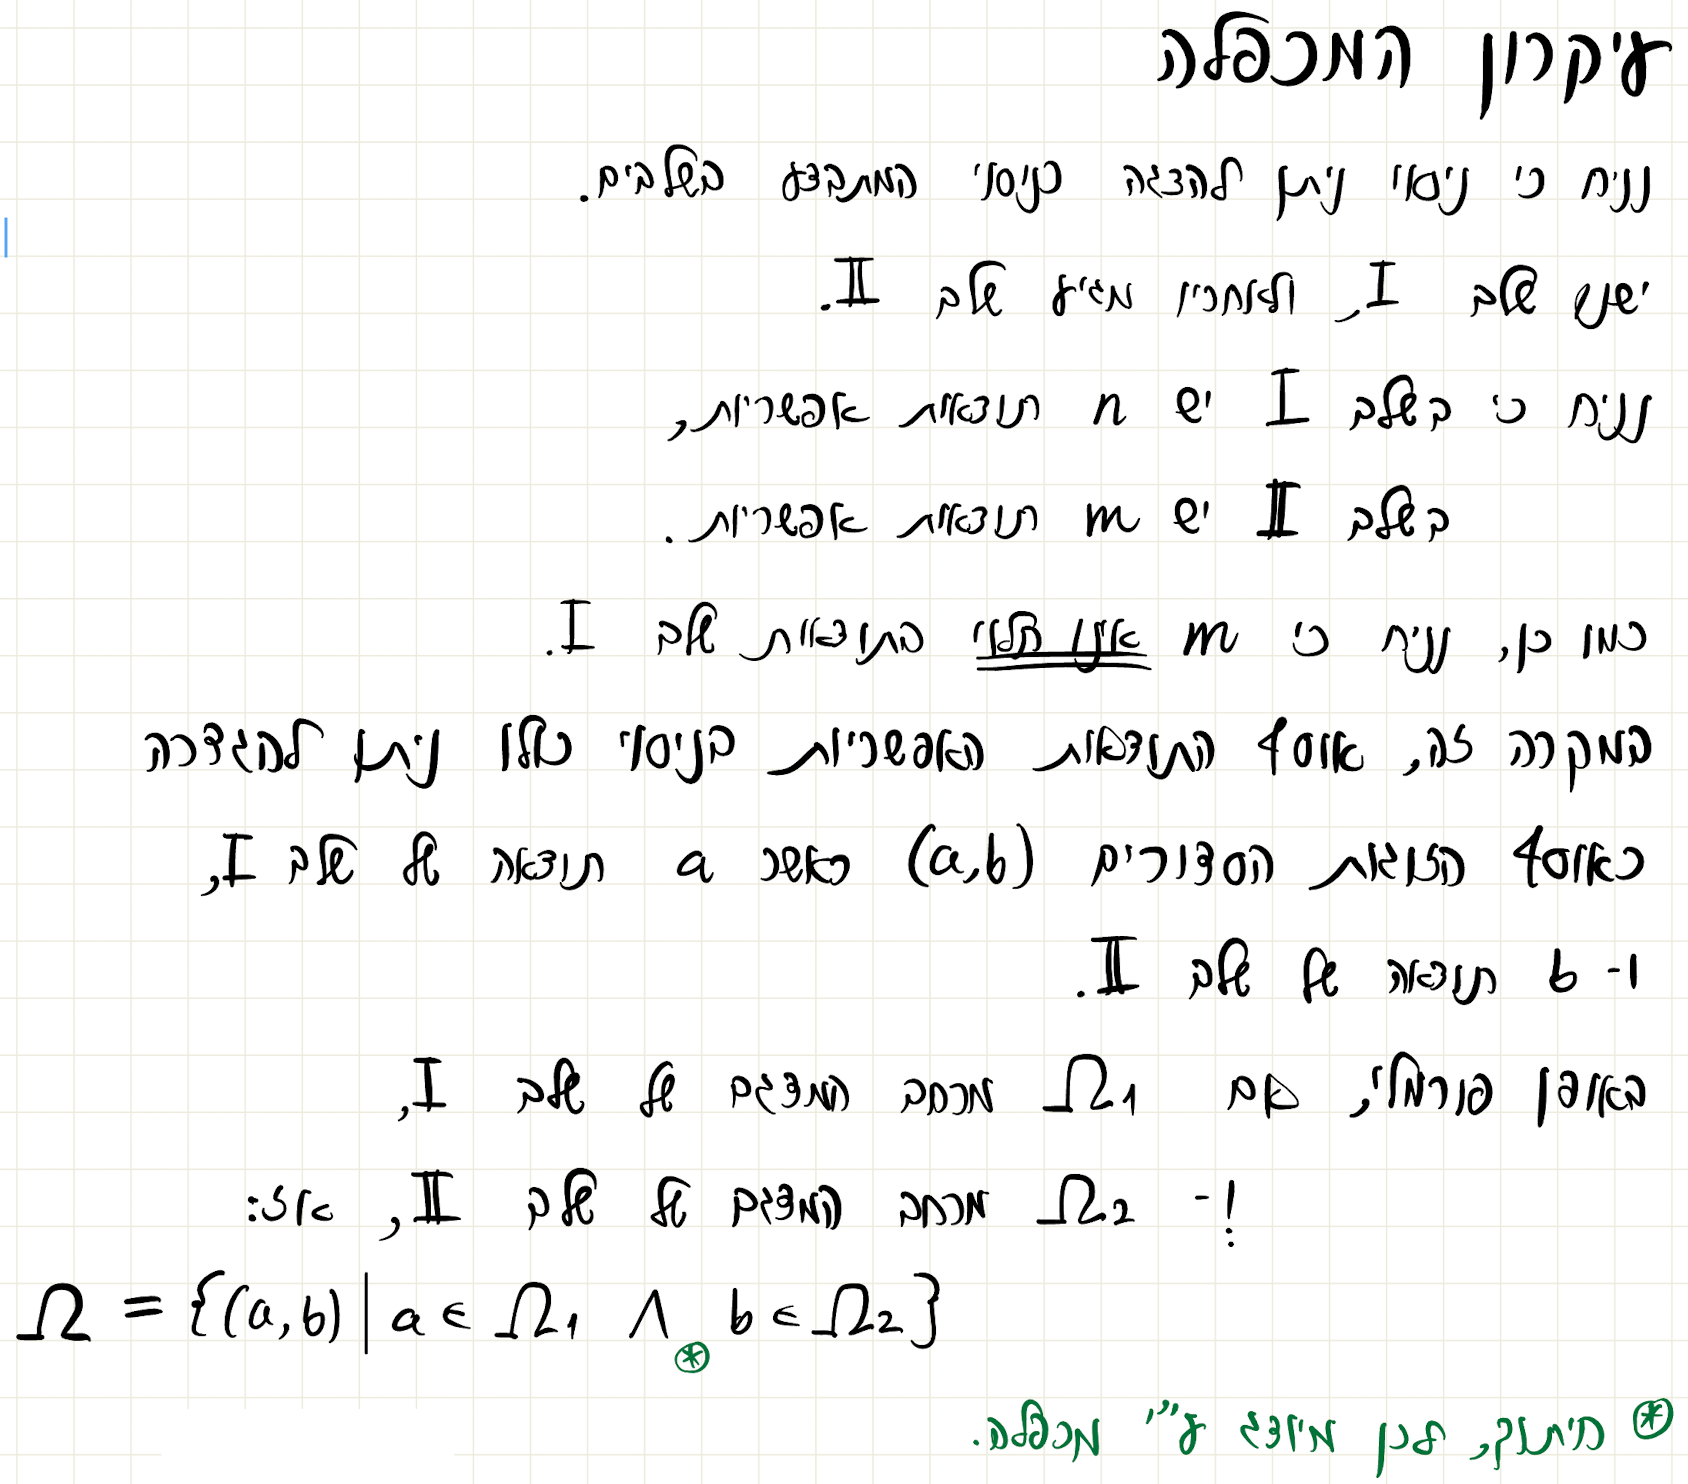 עיקרון המכפלה
נניח כי ניסוי ניתן להצגה כניסוי המתבצע בשלבים.
ישנו שלב I, ולאחריו מגיע שלב II.
נניח כי בשלב I יש n תוצאות אפשריות,
בשלב II יש m תוצאות אפשריות.
כמו כן, נניח כי m אינו תלוי בתוצאות שלב I.
במקרה זה, אוסף התוצאות האפשריות בניסוי כולו ניתן להגדרה
כאוסף הזוגות הסדורים (a,b) כאשר a תוצאה של שלב I,
ו- b תוצאה של שלב II.
באופן פורמלי, אם Ω1 מרחב המדגם של שלב I,
ו- Ω2 מרחב המדגם של שלב II, אז:
Ω = {(a,b) | a ∈ Ω1 ∧ b ∈ Ω2}
⊛
⊛ חיתוך, לכן מיוצג ע"י מכפלה.